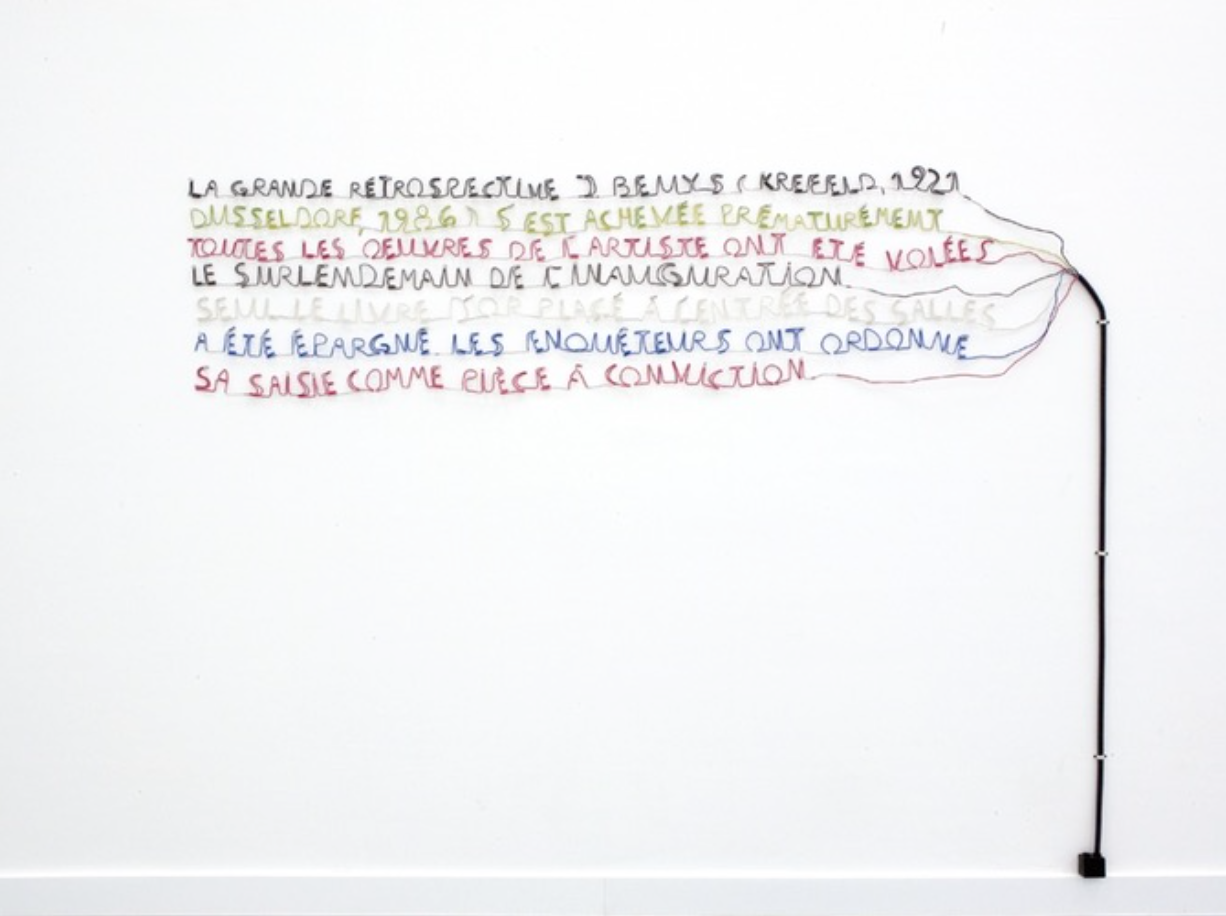 LA GRANDE RÉTROSPECTIVE J BEUYS ( KREFELD, 1921
DUSSELDORF, 1986 ) S EST ACHEVÉE PRÉMATURÉMENT
TOUTES LES OEUVRES DE L ARTISTE ONT ÉTÉ VOLÉES
LE SURLENDEMAIN DE L INAUGURATION
SEUL LE LIVRE D'OR PLACÉ À L ENTRÉE DES SALLES
A ÉTÉ ÉPARGNÉ. LES ENQUÊTEURS ONT ORDONNÉ
SA SAISIE COMME PIÈCE À CONVICTION